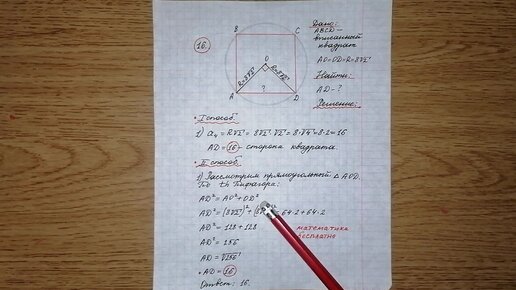 16.
B
C
O
R=8√2
R=8√2
A
?
D
Дано:
ABCD –
вписанный
квадрат
AO=OD=R=8√2
Найти:
AD – ?
Решение:
• I способ:
1) a₄ = R√2 = 8√2 · √2 = 8·√4 = 8·2 = 16
AD = 16 – сторона квадрата.
• II способ:
1) Рассмотрим прямоугольный △ AOD.
По th Пифагора:
AD² = AO² + OD²
AD² = (8√2)² + (8√2)² = 64·2 + 64·2
AD² = 128 + 128
AD² = 256
AD = √256
• AD = 16
Ответ: 16.
математика
бесплатно